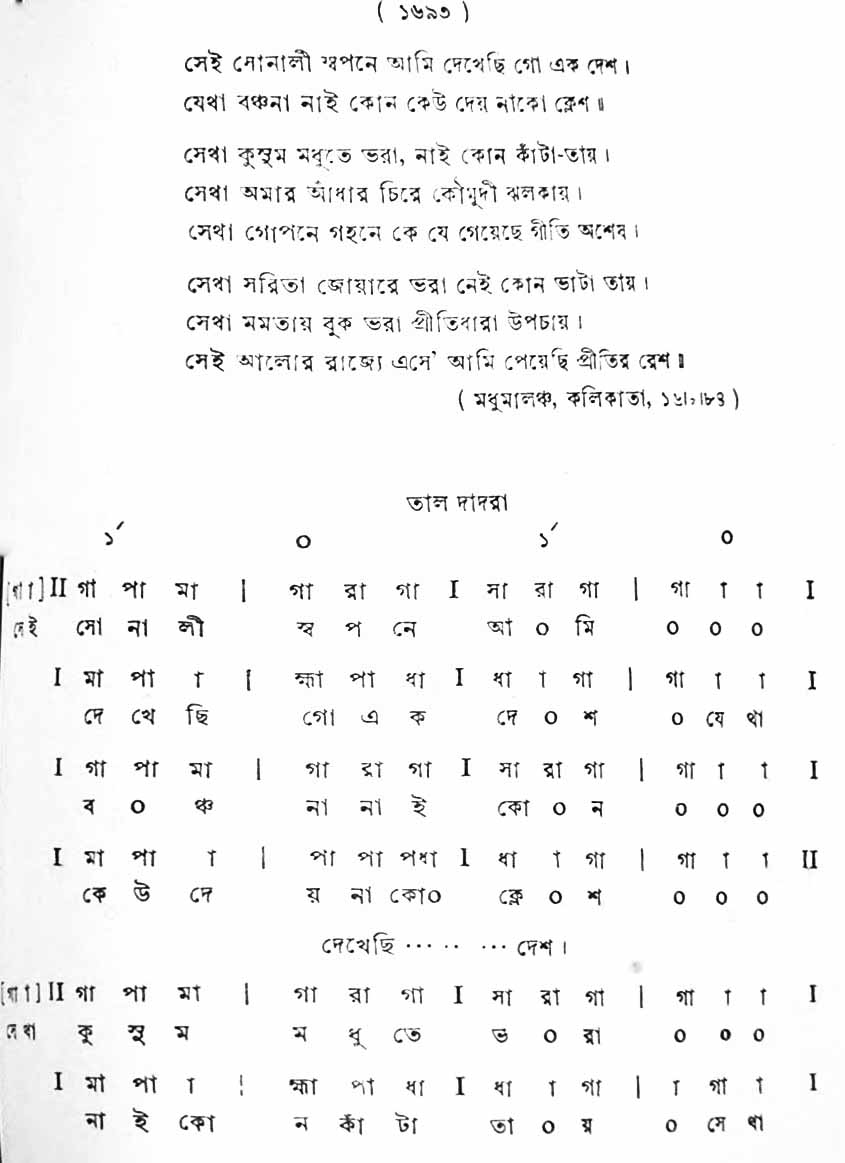 ( ১৬৯৩ )
সেই সোনালী স্বপনে আমি দেখেছি গো এক দেশ ।
যেথা বঞ্চনা নাই কোন কেউ দেয় নাকো ক্লেশ ॥
সেথা কুসুম মধুতে ভরা, নাই কোন কাঁটা-তায় ।
সেথা অমার আঁধার চিরে কৌমুদী ঝলকায় ।
সেথা গোপনে গহনে কে যে গেয়েছে গীতি অশেষ ।
সেথা সরিতা জোয়ারে ভরা নেই কোন ভাটা তায় ।
সেথা মমতায় বুক ভরা প্রীতিধারা উপচায় ।
সেই আলোর রাজ্যে এসে' আমি পেয়েছি প্রীতির রেশ ॥
( মধুমালঞ্চ, কলিকাতা,
তাল দাদরা
১´ ০ ১´ ০
[গা া] II গা পা মা | গা রা গা I সা রা গা | গা া া I
সেই সো না লী স্ব প নে আ ০ মি ০ ০ ০
I মা পা া | হ্মা পা ধা I ধা া গা | গা া া I
দে খে ছি গো এ ক দে ০ শ ০ যে থা
I গা পা মা | গা রা গা I সা রা গা | গা া া I
ব ০ ঞ্চ না না ই কো ০ ন ০ ০ ০
I মা পা া | পা পা পধা l ধা া গা | গা া া II
কে উ দে য় না কো০ ক্লে ০ শ ০ ০ ০
দেখেছি ··· ·· ··· দেশ ।
[গা া] II গা পা মা | গা রা গা I সা রা গা | গা া া I
সেথা কু সু ম ম ধু তে ভ ০ রা ০ ০ ০
I মা পা া ¦ হ্মা পা ধা I ধা া গা | া গা া I
না ই কো ন কাঁ টা তা ০ য় ০ সে থা